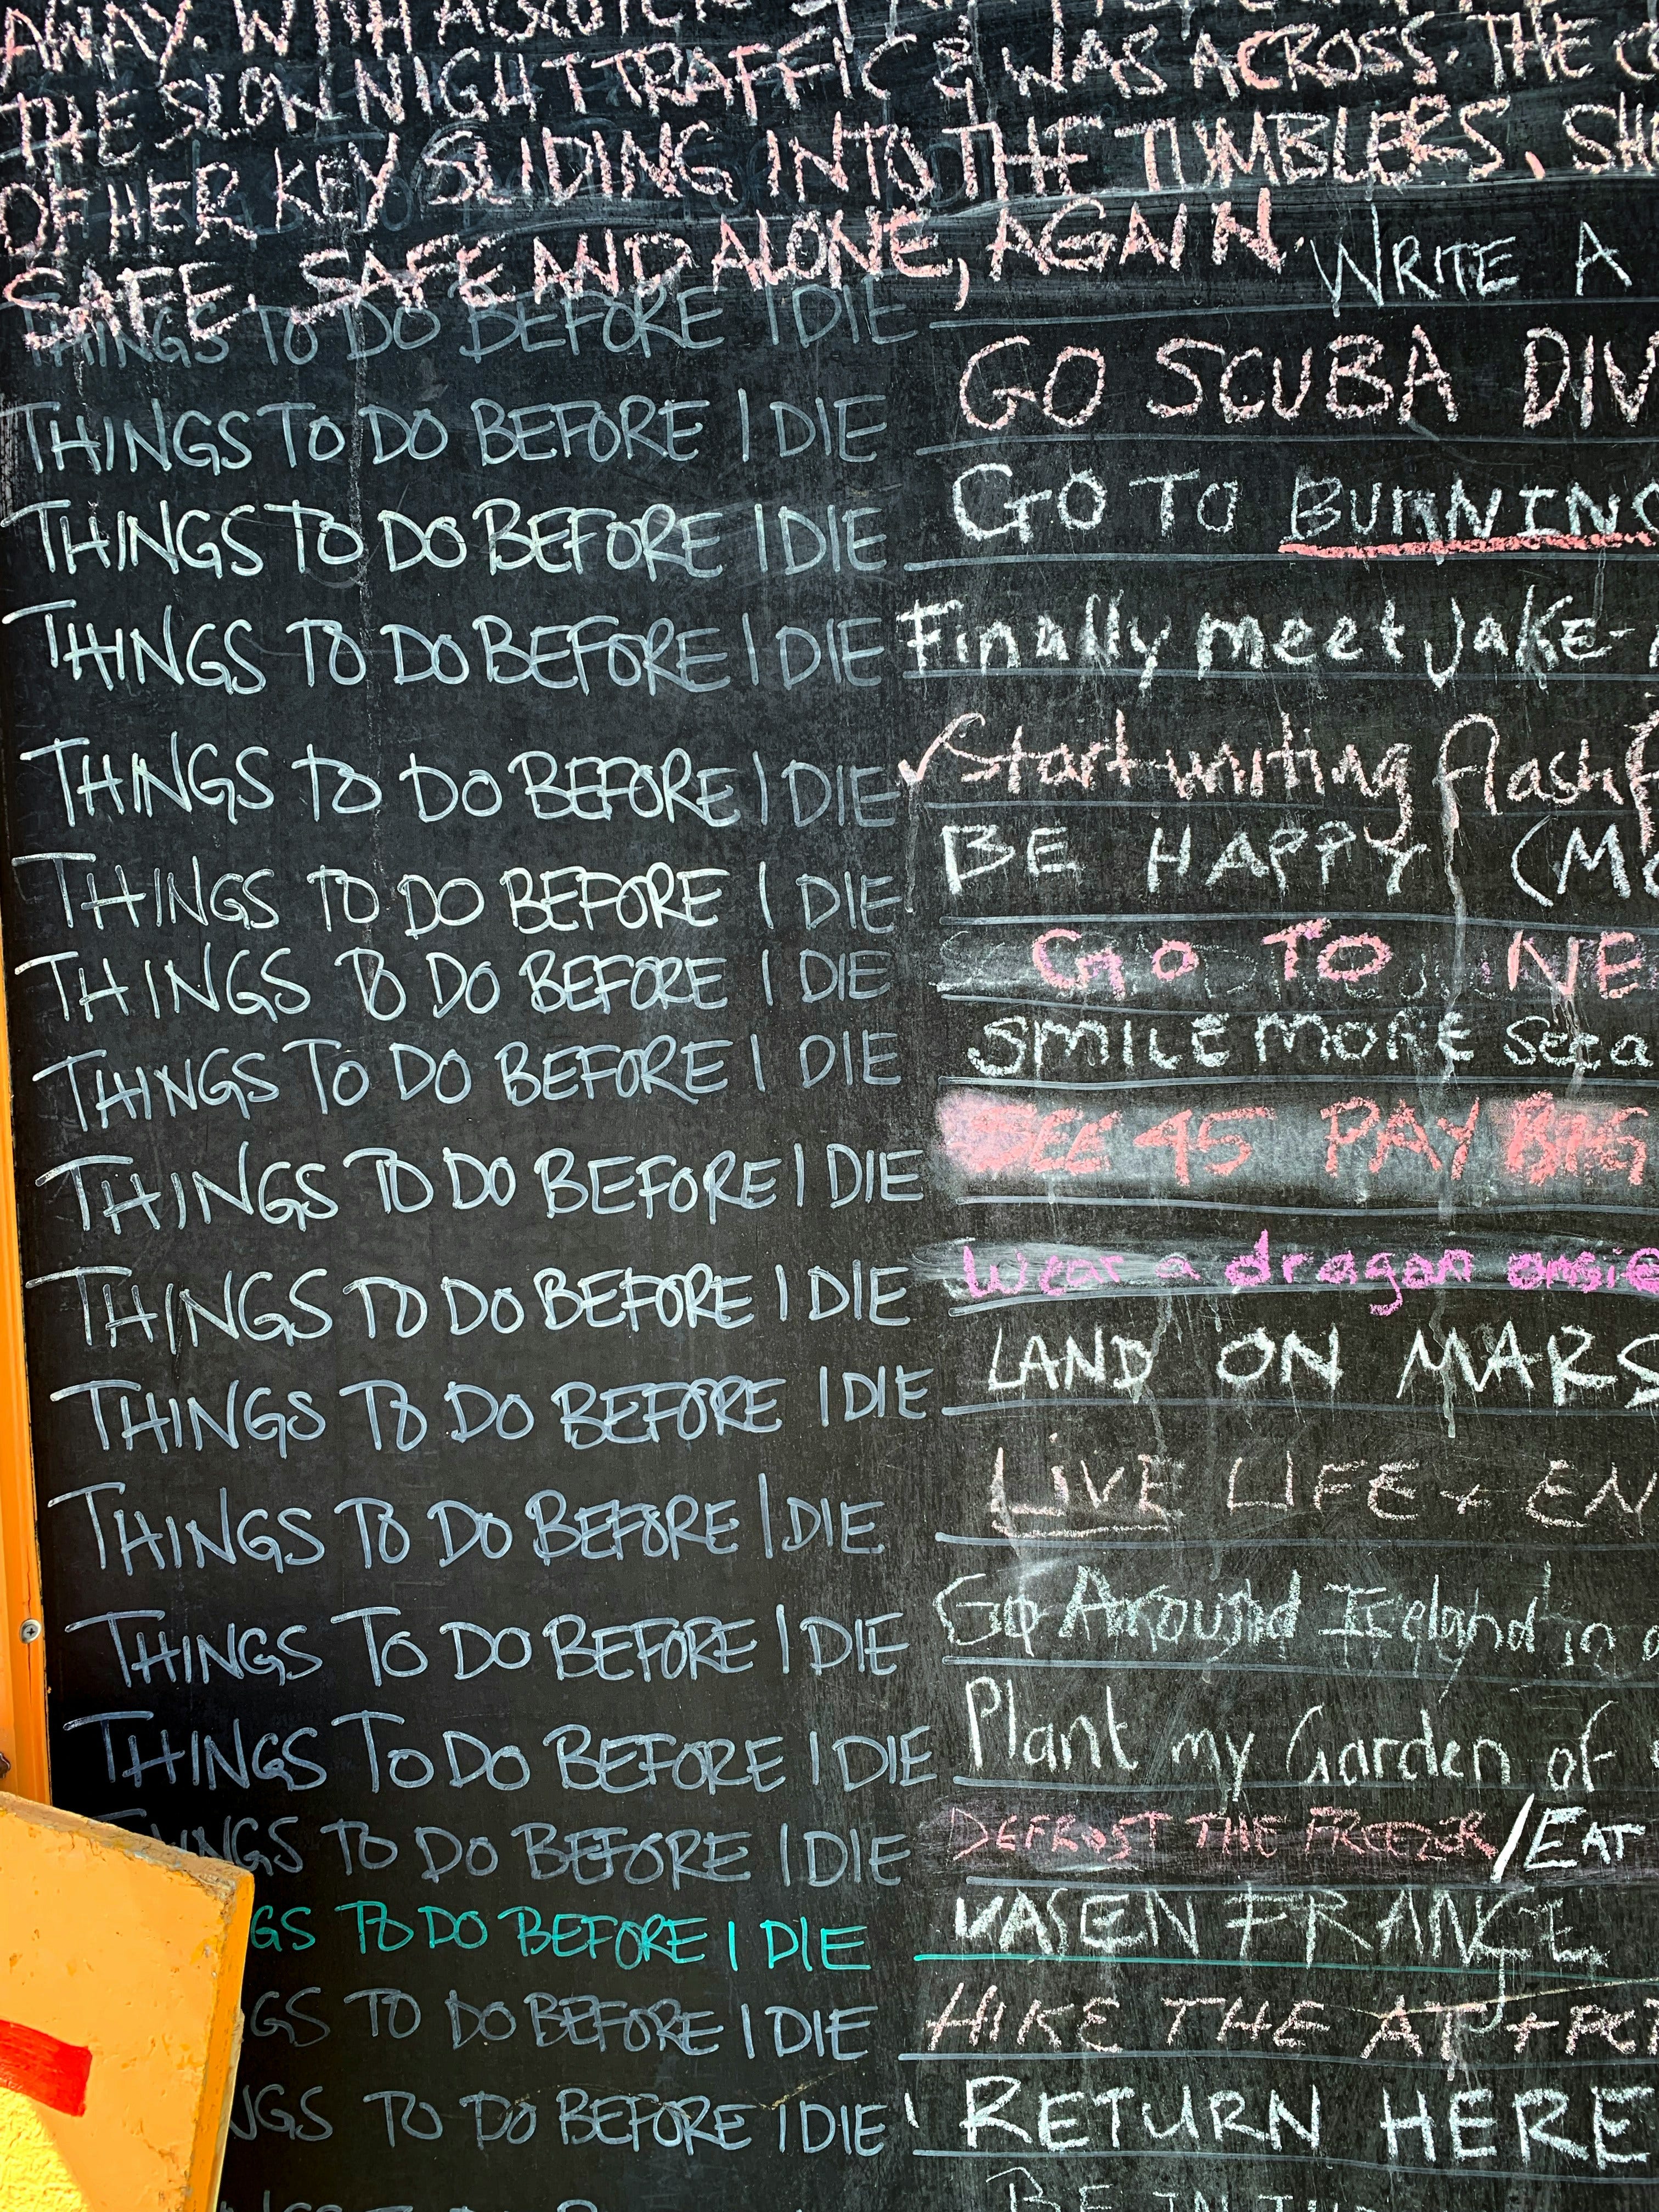 AWAY. WITH
THE SLOW NIGHT TRAFFIC & WAS ACROSS. THE
OF HER KEY SLIDING INTO THE TUMBLERS. SH
SAFE. SAFE AND ALONE, AGAIN.
THINGS TO DO BEFORE I DIE WRITE A
THINGS TO DO BEFORE I DIE GO SCUBA DIV
THINGS TO DO BEFORE I DIE GO TO BURNING
THINGS TO DO BEFORE I DIE Finally meet Jake-
THINGS TO DO BEFORE I DIE ✓ Start writing flash f
THINGS TO DO BEFORE I DIE BE HAPPY (MO
THINGS TO DO BEFORE I DIE GO TO NE
THINGS TO DO BEFORE I DIE SMILE MORE
THINGS TO DO BEFORE I DIE SEE 45 PAY BIG
THINGS TO DO BEFORE I DIE Wear a dragon onsie
THINGS TO DO BEFORE I DIE LAND ON MARS
THINGS TO DO BEFORE I DIE LIVE LIFE + EN
THINGS TO DO BEFORE I DIE Go Around Ireland in a
THINGS TO DO BEFORE I DIE Plant my Garden of
THINGS TO DO BEFORE I DIE DEFROST THE FREEZER / EAT
GS TO DO BEFORE I DIE VASEN FRANCE
GS TO DO BEFORE I DIE HIKE THE AT + PCT
NGS TO DO BEFORE I DIE RETURN HERE
BE IN